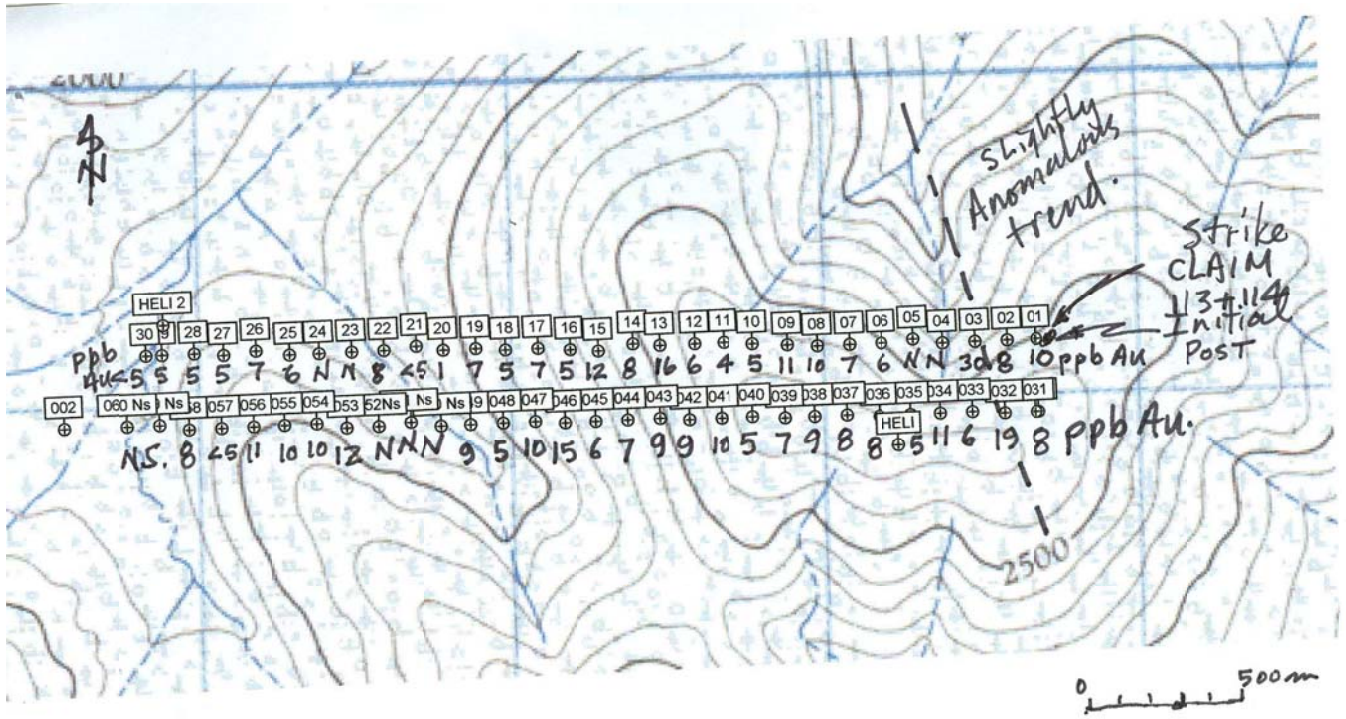 2000
N
Slightly
Anomalous
trend.
Strike
CLAIM
113+114
Initial
Post
HELI 2
30 9 28 27 26 25 24 23 22 21 20 19 18 17 16 15 14 13 12 11 10 09 08 07 06 05 04 03 02 01
ppb
Au <5 5 5 5 7 6 N N 8 <5 1 7 5 7 5 12 8 16 6 4 5 11 10 7 6 N N 30 8 10 ppb Au
002 060 Ns Ns 58 057 056 055 054 053 52Ns Ns Ns 49 048 047 046 045 044 043 042 041 040 039 038 037 036 035 034 033 032 031
HELI
N.S. 8 <5 11 10 10 12 N N N 9 5 10 15 6 7 9 9 10 5 7 9 8 8 5 11 6 19 8 ppb Au.
2500
0 500m